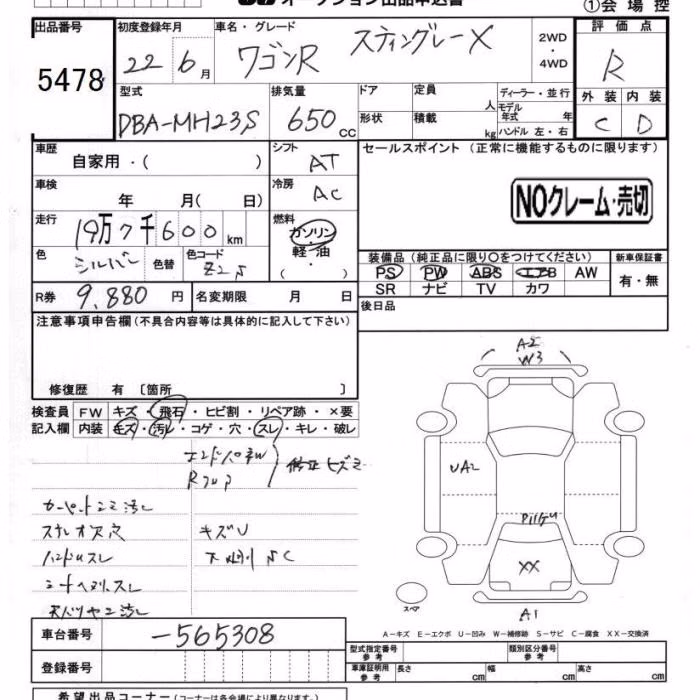 オークション出品申込書
①会場控
出品番号
5478
初度登録年月
22 6月
車名・グレード
ワゴンR スティングレーX
2WD
・
4WD
評価点
R
外装 内装
C D
型式
DBA-MH23S
排気量
650cc
ドア
形状
定員 人
積載 kg
ディーラー・並行
モデル年式 年
ハンドル 左・右
車歴
自家用・( )
シフト
AT
車検
年 月( 日)
冷房
AC
走行
19万7千600km
燃料
ガソリン
軽・油
( )
色
シルバー
色替
色コード
Z2S
R券 9,880円
名変期限 月 日
セールスポイント (正常に機能するものに限ります)
NOクレーム・売切
装備品(純正品に限り○をつけてください)
新車保証書
PS PW ABS エアB AW
SR ナビ TV カワ
有・無
後日品
注意事項申告欄(不具合内容等は具体的に記入して下さい)
修復歴 有 〔箇所 〕
検査員記入欄
FW キズ・飛石・ヒビ割・リペア跡・×要
内装 キズ・汚レ・コゲ・穴・スレ・キレ・破レ
汚レ
キズU
下廻り SC
A2
W3
UA2
XX
A1
スペア
A-キズ E-エクボ U-凹み W-補修跡 S-サビ C-腐食 XX-交換済
車台番号 -565308
登録番号
型式指定番号 参考
類別区分番号 参考
車庫証明用 参考
長さ cm 幅 cm 高さ cm
希望出品コーナー(コーナーは各会場により異なります。)